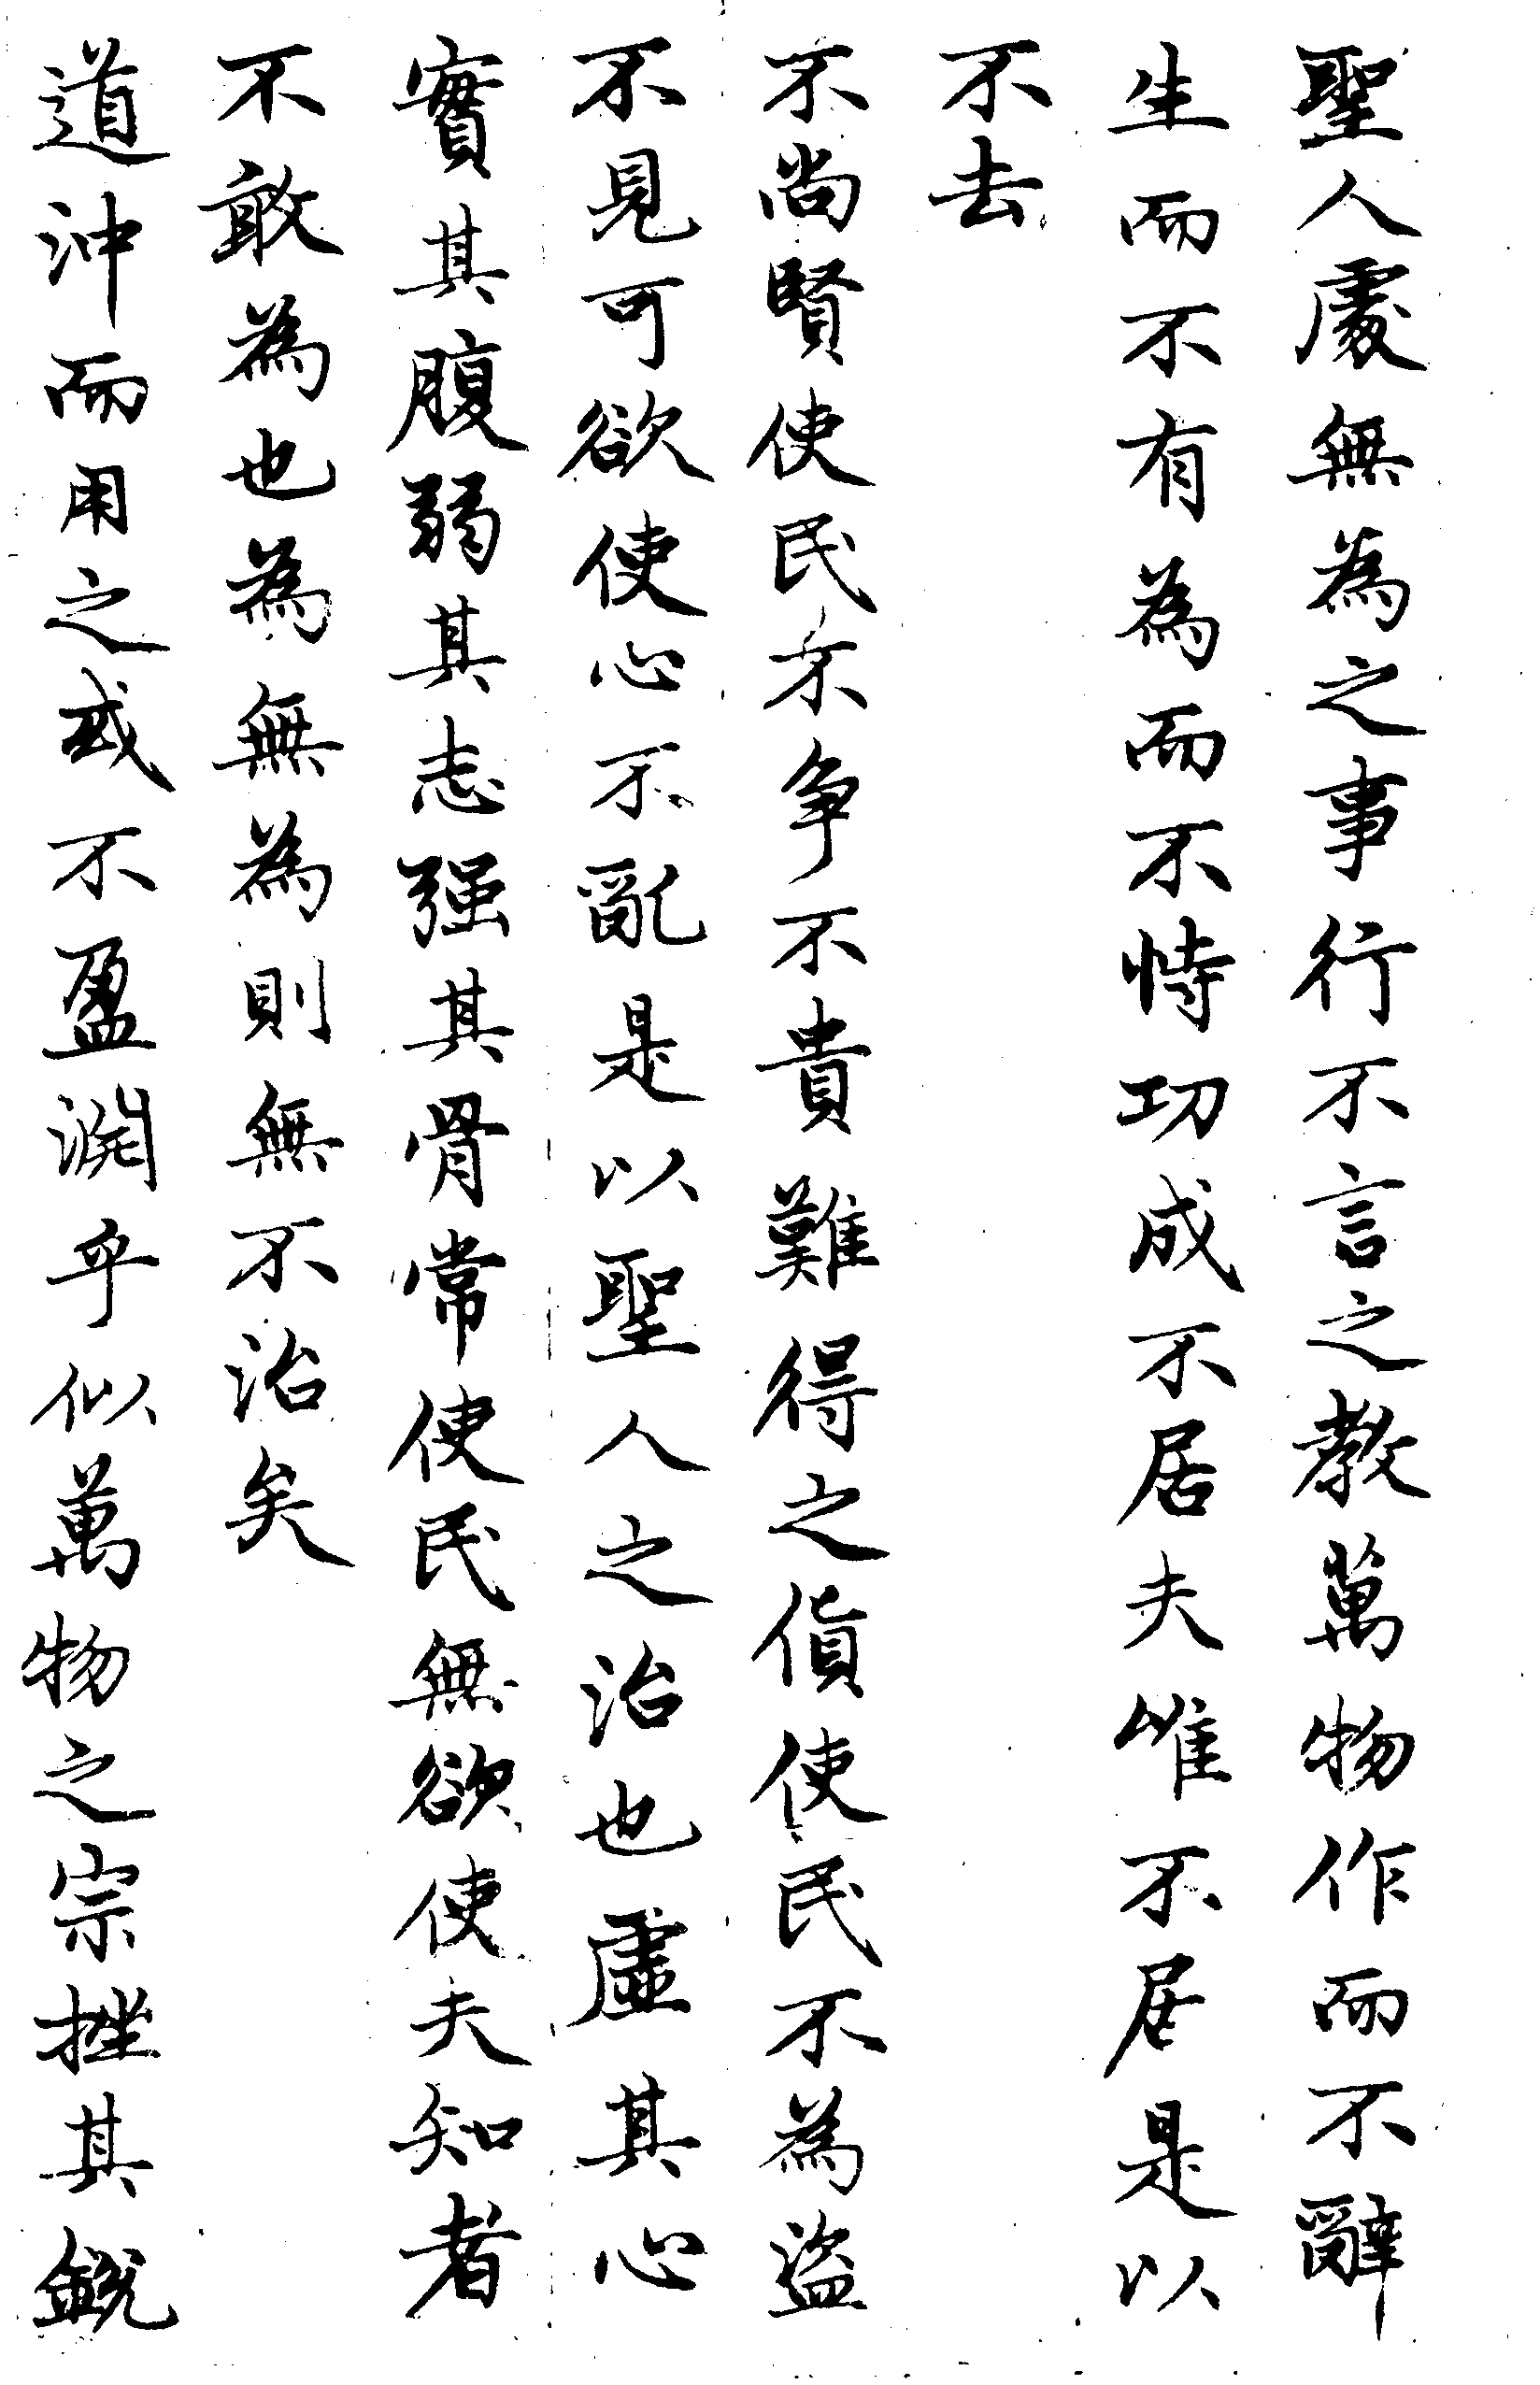 聖人處無為之事行不言之教萬物作而不辭
生而不有為而不恃功成不居夫唯不居是以
不去
不尚賢使民不爭不貴難得之貨使民不為盜
不見可欲使心不亂是以聖人之治也虛其心
實其腹弱其志强其骨常使民無欲使夫知者
不敢為也為無為則無不治矣
道沖而用之或不盈淵乎似萬物之宗挫其銳